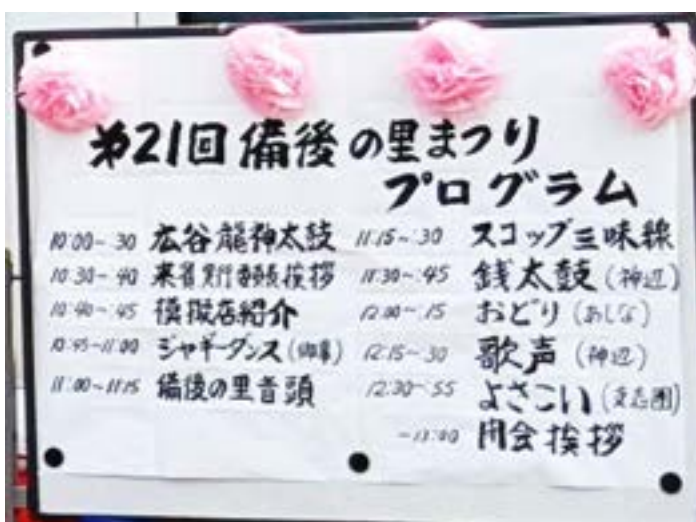 第21回備後の里まつり
プログラム
10:00~30 広谷龍神太鼓
10:30~40 来賓実行委員長挨拶
10:40~45 模擬店紹介
10:45~11:00 ジャギーダンス
11:00~11:15 備後の里音頭
11:15~:30 スコップ三味線
11:30~:45 銭太鼓(神辺)
12:00~:15 おどり(あしな)
12:15~30 歌声(神辺)
12:30~:55 よさこい
~13:00 閉会挨拶